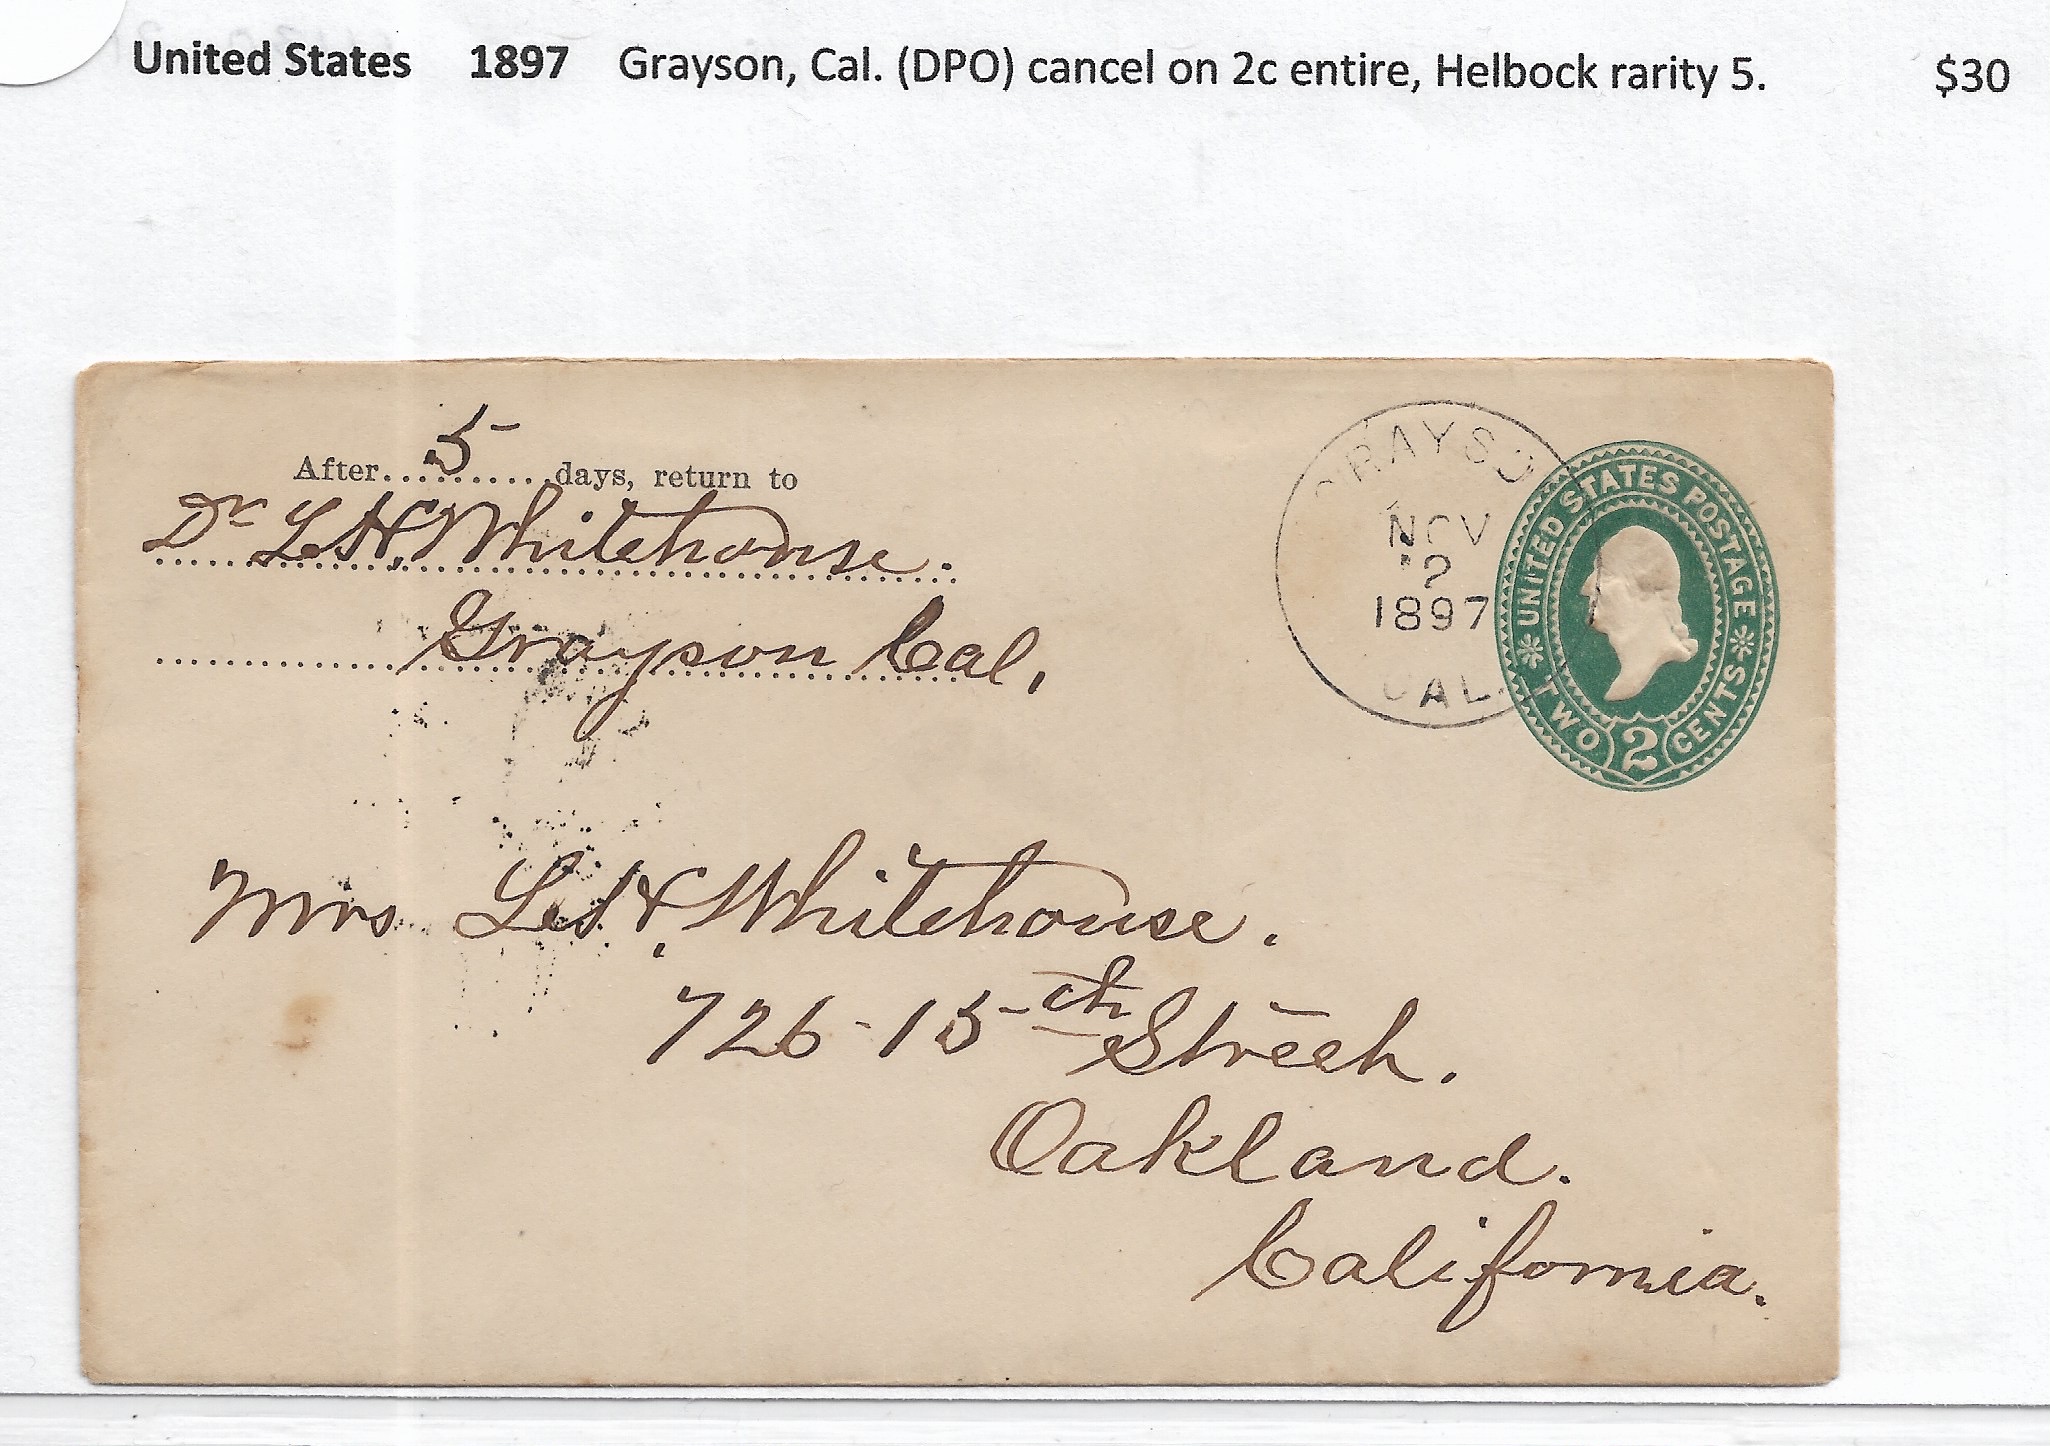 United States 1897 Grayson, Cal. (DPO) cancel on 2c entire, Helbock rarity 5. $30
After..........days, return to
5
Dr L. H. Whitehouse.
Grayson Cal,
GRAYSO
NOV
2
1897
CAL.
UNITED STATES POSTAGE
TWO 2 CENTS
Mrs L. H. Whitehouse.
726-15th Street.
Oakland.
California.